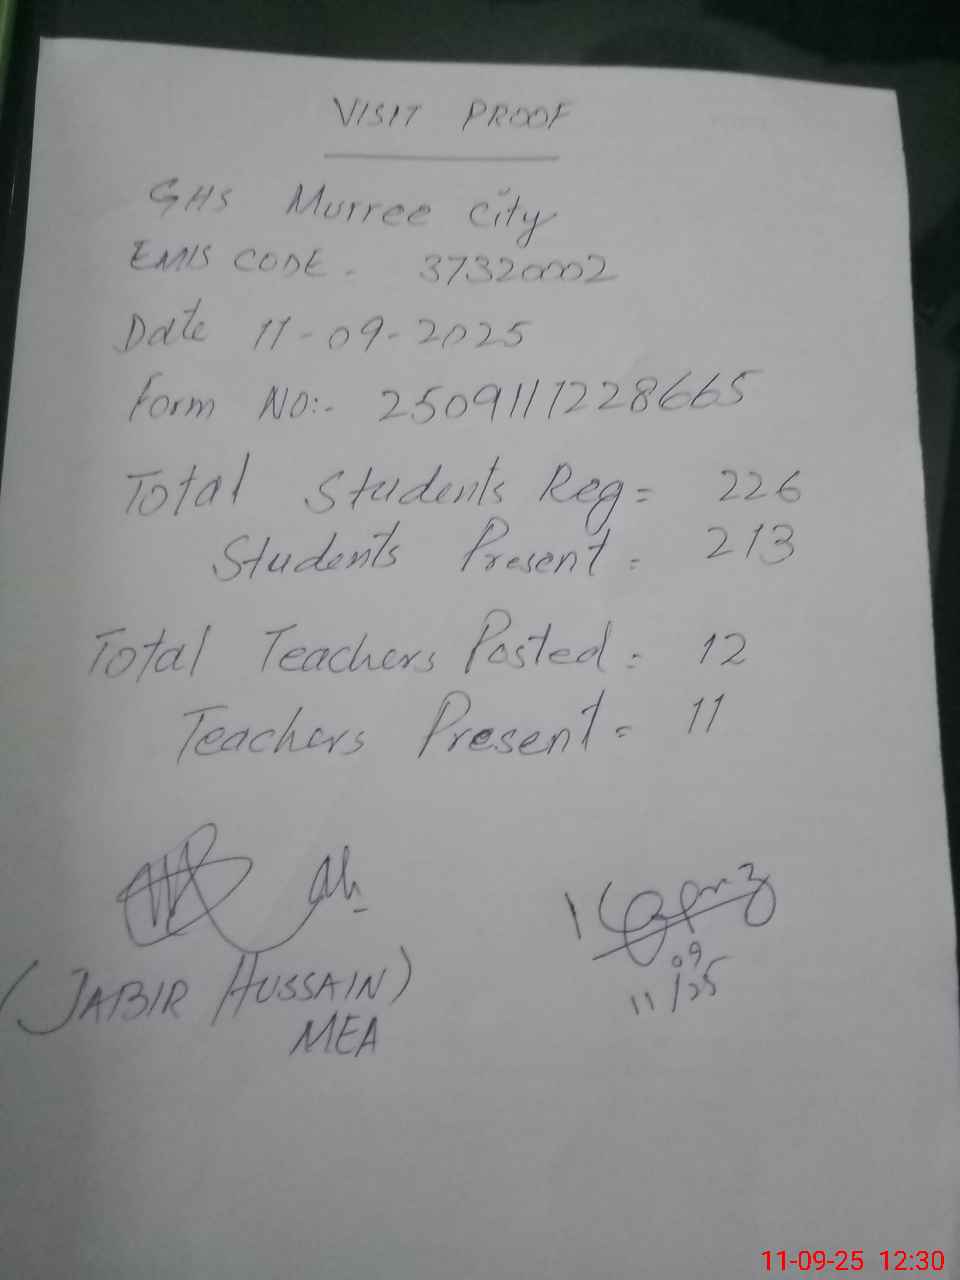 VISIT PROOF
GHS Murree City
EMIS CODE - 37320002
Date 11-09-2025
Form NO:- 2509111228665
Total Students Reg = 226
Students Present = 213
Total Teachers Posted = 12
Teachers Present = 11
(JABIR HUSSAIN)
MEA
09
11/25
11-09-25 12:30